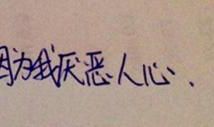 因为我厌恶人心.